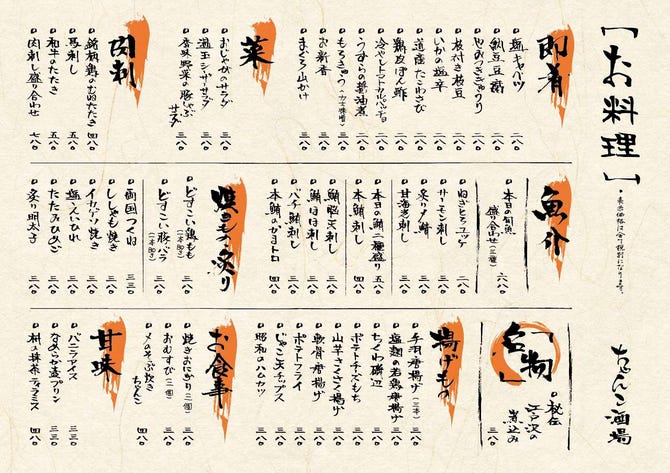 【お料理】
・表示価格は全て税別になります。
ちゃんこ酒場
即肴
塩キャベツ 二八〇
納豆豆腐 二八〇
やみつききゅうり 二八〇
枝付き枝豆 二八〇
いかの塩辛 二八〇
道産たこわさび 二八〇
鶏皮ぽん酢 二八〇
冷やしトマトカルパッチョ 二八〇
うずらの醤油煮 二八〇
もろきゅう(力士味噌) 三八〇
お新香 三八〇
まぐろ山かけ 三八〇
菜
おじゃがのサラダ 三八〇
温玉シーザーサラダ 三八〇
香味野菜の豚しゃぶサラダ 三八〇
肉刺
銘柄鶏のむね肉たたき 四八〇
馬刺し 五八〇
和牛のたたき 五八〇
肉刺し盛り合わせ 七八〇
魚介
本日の旬魚盛り合わせ(三種) 六八〇
ねぎとろユッケ 二八〇
サーモン刺し 三八〇
炙り〆鯖 三八〇
甘海老刺し 三八〇
本日の鮪三種盛り 五八〇
本鮪刺し 四八〇
鮪脳天刺し 三八〇
鮪ほほ刺し 三八〇
バチ鮪刺し 三八〇
本鮪のかまトロ 四八〇
焼きもの・炙り
どすこい鶏もも(二本180g) 三八〇
どすこい豚バラ(二本180g) 三八〇
両国つくね 三三〇
ししゃも焼き 三八〇
イカゲソ焼き 三八〇
塩えいひれ 三八〇
たたみいわし 三八〇
炙り明太子 三八〇
「名物」
秘伝江戸沢の煮込み 三八〇
揚げもの
手羽唐揚げ(三本) 三八〇
塩麹の若鶏唐揚げ 三八〇
ちくわ磯辺 三八〇
ポテトチーズもち 三八〇
山芋さくさく揚げ 三八〇
軟骨唐揚げ 三八〇
ポテトフライ 三八〇
じゃこ天チップス 三八〇
昭和のハムカツ 三八〇
お食事
焼きおにぎり(二個) 二八〇
おむすび(二個) 二八〇
〆のぞうすいちゃんこ 四八〇
甘味
バニラアイス 三三〇
なめらか壺プリン 三八〇
桝入抹茶ティラミス 四八〇